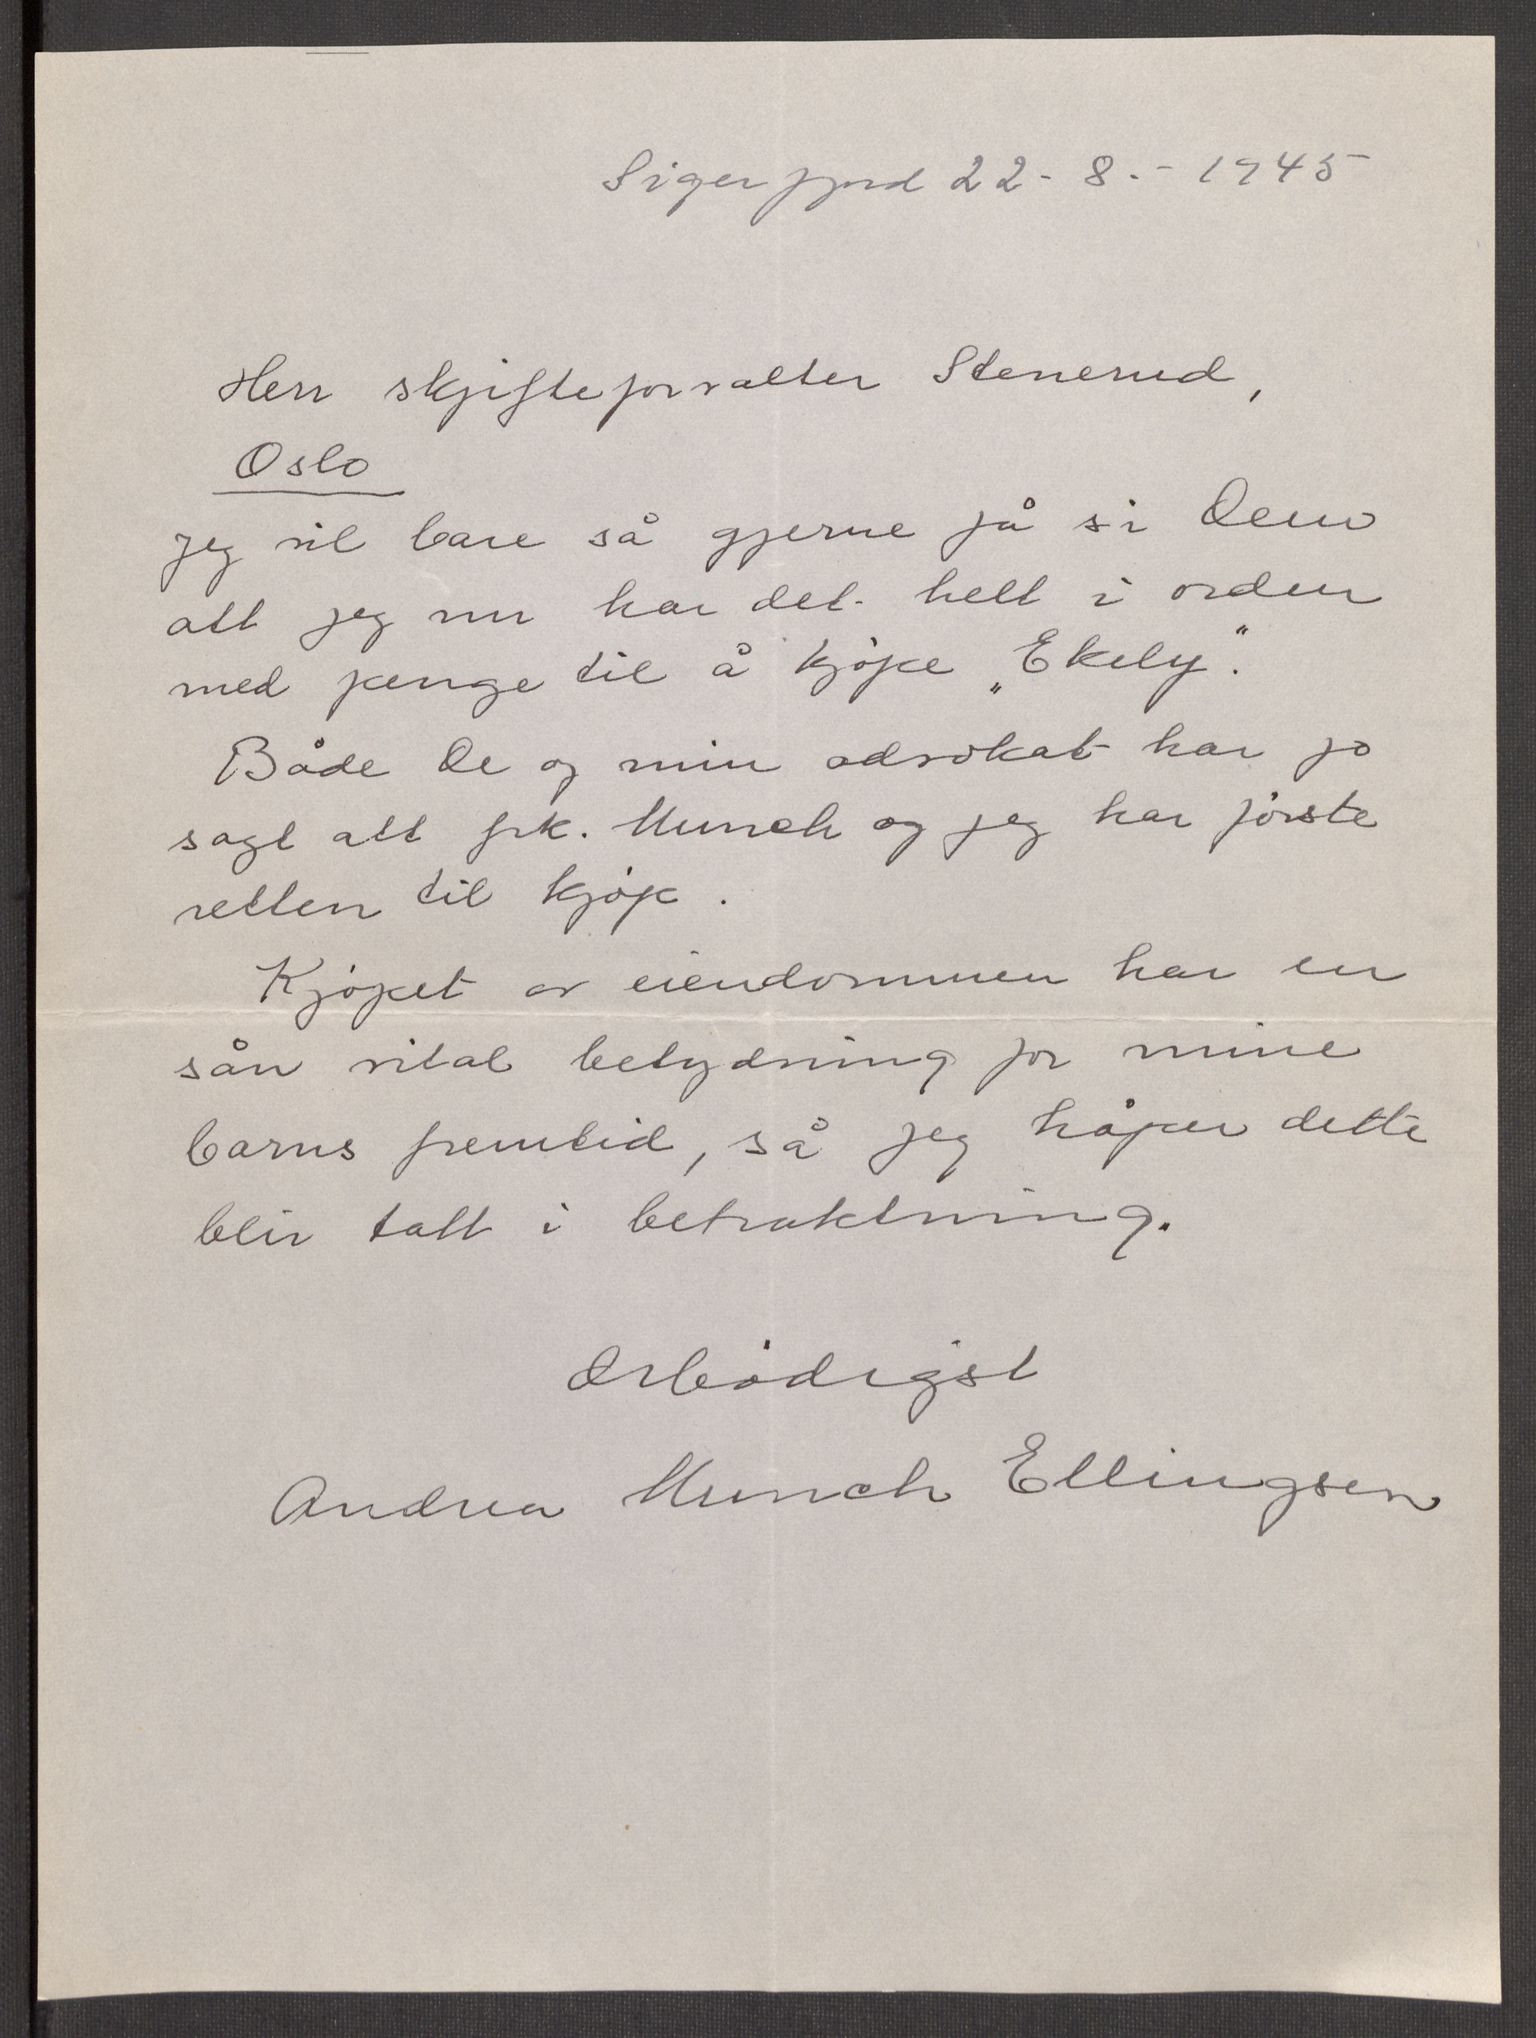 Sigerfjord 22 - 8. - 1945
Herr skjifteforvalter Stenerud,
Oslo
Jeg vil bare så gjerne få si Dem
att jeg nu har det helt i orden
med penge til å kjøpe „Ekely“.
Både De og min advokat har jo
sagt att frk. Munch og jeg har første
retten til kjøp.
Kjøpet av eiendommen har en
sån vital betydning for mine
barns fremtid, så jeg håper dette
blir tatt i betraktning.
Ærbødigst
Andrea Munch Ellingsen